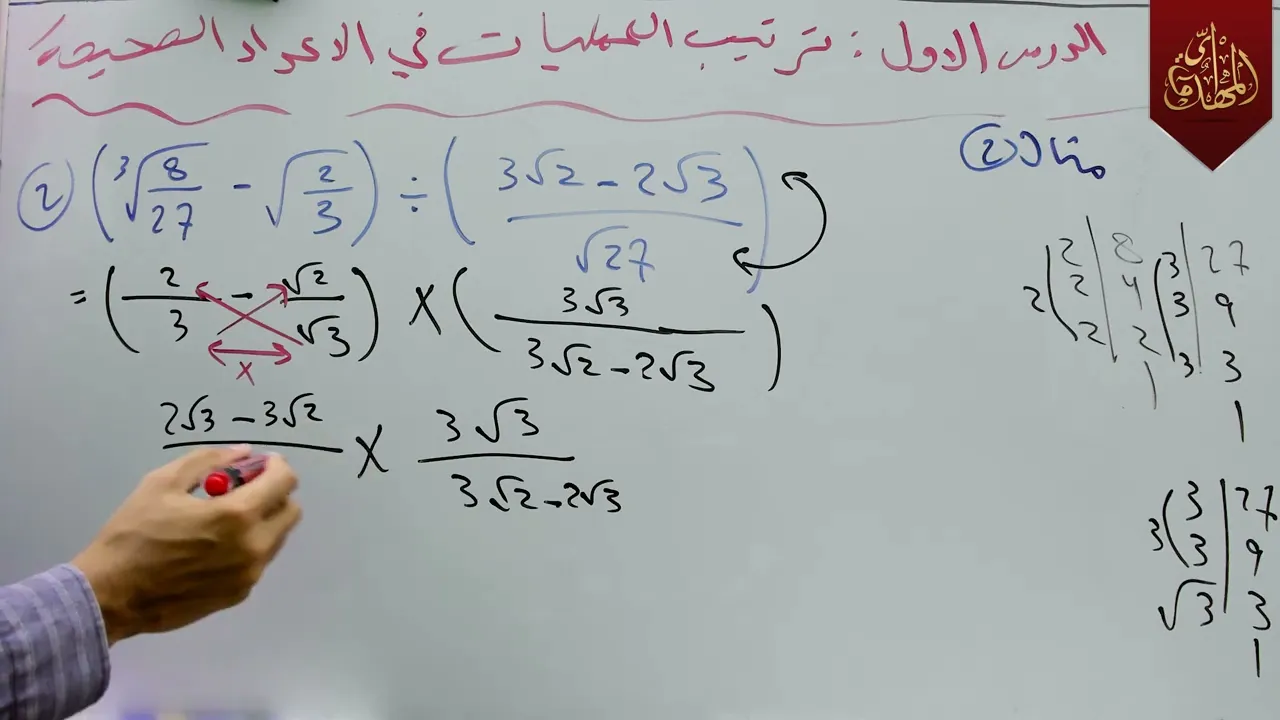 الدرس الاول : ترتيب العمليات في الاعداد الصحيحة
مثال (2)
(2) (∛(8/27) - √(2/3)) ÷ ((3√2 - 2√3)/√27)
= (2/3 - √2/√3) × (3√3/(3√2 - 2√3))
×
2√3 - 3√2 × 3√3/(3√2 - 2√3)
2 | 8
2 | 4
2 | 2
1
2
3 | 27
3 | 9
3 | 3
1
3 | 27
3 | 9
√3 | 3
1
3